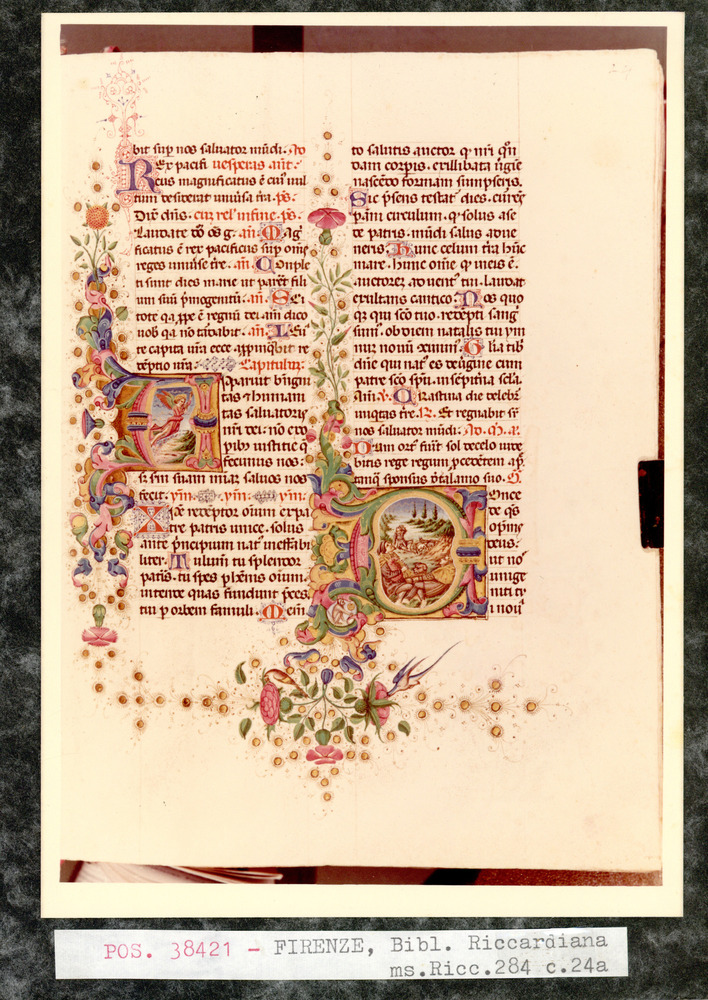 bit sup nos saluator mūdi. Ad
Rex pacifi uesperas aūt.
cus magnificatus ē cui' uul
tum desiderat uniūsa tr̄a. ps.
Dix̄ dn̄s. cū rel' in fine. ps.
Laudate dō os g. añ. Mag
ficatus ē rex pacificus sup om̄e
reges uniūse tr̄e. añ. Comple
ti sunt dies marie ut paret fili
um suū p̄mogenitū. añ. Sci
tote q̄a ꝓpe ē regnū dei añ dico
uob̄ q̄a nō tardabit. añ. Leua
te capita ur̄a ecce appinq̄bit re
dēptio ur̄a. Capitulū.
Apparuit bn̄igni
tas & humani
tas saluatoris
nr̄i dei: nō ex o
pib' iustitie q̄
fecimus nos
s; s̄m suam miāz saluos nos
fecit. ym̄. ym̄. ym̄.
Xp̄e redēptor oium ex pa
tre patris unice. solus
ante p̄ncipium nat' ineffabi
liter. Tu lum̄ tu splendor
patris. tu spes phēnis oium.
intende quas fundunt p̄ces.
tui p orbem famuli. Mem̄
to salutis auctor q nr̄i q̄n
dam corpis. ex illibata ūgie
nascēdo formam sumpseris.
Sic p̄sens testat' dies. curēs
p añi circulum. q solus a se
de patris mūdi salus adue
neris. Hunc celum tr̄a hūc
mare. hunc om̄e q in eis ē.
auctorez aduent' tui. laudat
exultans cantico. Nos quo
q̄ qui scō tuo. redēpti sang
sum'. ob diem natalis tui ym
nuz nouū. Glīa tib
dn̄e qui nat' es de ūgine cum
patre scō spū. in sēpitna scla.
Am̄. Crastina die delebr̄
iniq̄tas tr̄e. R. Et regnabit sr̄
nos saluator mūdi. Ad. M. a.
Dum ort' fūit sol de celo uide
bitis rege regum ꝓcedētem a p̄.
tanq̄ sponsus d̄ talamo suo. O.
Once
de q̄s
op̄ips
deus.
ut no
unige
niti tu
i noua
POS. 38421 - FIRENZE, Bibl. Riccardiana
ms.Ricc.284 c.24a